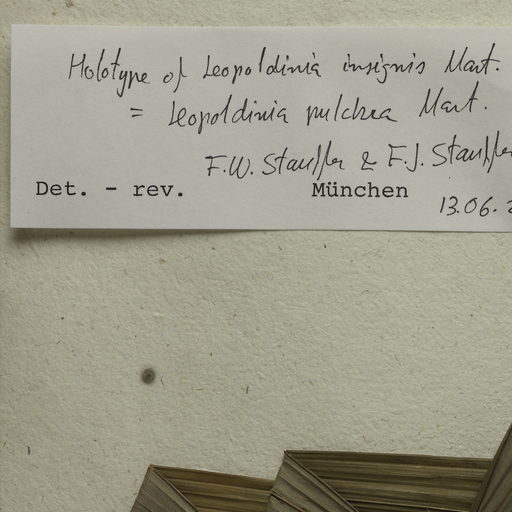 Holotype of Leopoldinia insignis Mart.
= Leopoldinia pulchra Mart.
F.W. Stauffer & F.J. Stauffer
Det. - rev. München 13.06.